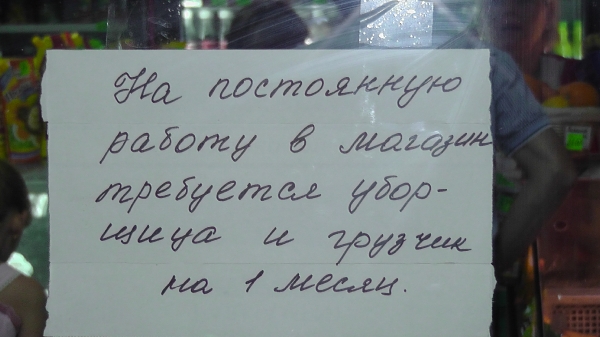 На постоянную
работу в магазин
требуется убор-
щица и грузчик
на 1 месяц.